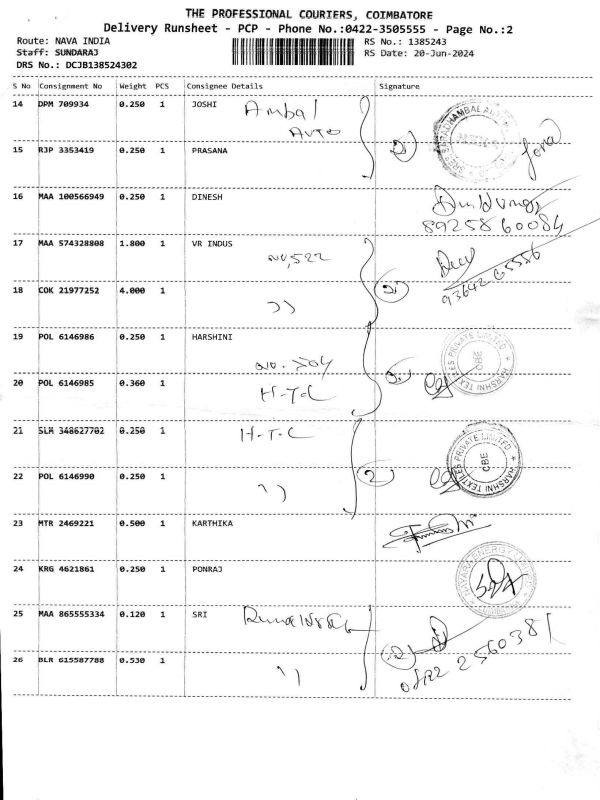 THE PROFESSIONAL COURIERS, COIMBATORE
Delivery Runsheet - PCP - Phone No.:0422-3505555 - Page No.:2
Route: NAVA INDIA RS No.: 1385243
Staff: SUNDARAJ RS Date: 20-Jun-2024
DRS No.: DCJB138524302
S No Consignment No Weight PCS Consignee Details Signature
14 DPM 709934 0.250 1 JOSHI Ambal
AUTO
15 RJP 3353419 0.250 1 PRASANA 2)
16 MAA 100566949 0.250 1 DINESH
8925860084
17 MAA 574328808 1.800 1 VR INDUS
NO,522
93642 65556
18 COK 21977252 4.000 1
19 POL 6146986 0.250 1 HARSHINI
HARSHNI TEXTILES PRIVATE LIMITED
CBE
NO. 504
20 POL 6146985 0.360 1 H-T-C
21 SLM 348627702 0.250 1 H-T-C
HARSHNI TEXTILES PRIVATE LIMITED
CBE
22 POL 6146990 0.250 1 2
23 MTR 2469221 0.500 1 KARTHIKA
24 KRG 4621861 0.250 1 PONRAJ
25 MAA 865555334 0.120 1 SRI
26 BLR 615587788 0.530 1 2
0422 2560381